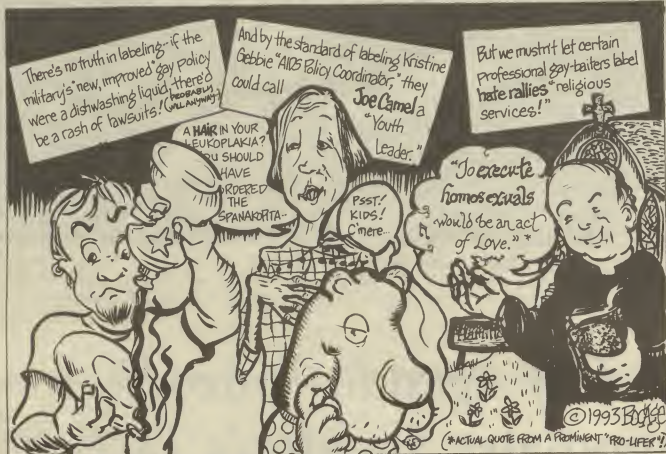 There's no truth in labeling--if the
military's "new, improved" gay policy
were a dishwashing liquid, there'd
be a rash of lawsuits! (PROBABLY
WILL ANYWAY.)
And by the standard of labeling Kristine
Gebbie "AIDS Policy Coordinator," they
could call Joe Camel a
"Youth
Leader."
But we mustn't let certain
professional gay-baiters label
hate rallies "religious
services!"
A HAIR IN YOUR
LEUKOPLAKIA?
YOU SHOULD
HAVE
ORDERED
THE
SPANAKOPITA--
PSST!
KIDS!
C'mere...
"To execute
homosexuals
would be an act
of Love."*
©1993 BOASE
(*ACTUAL QUOTE FROM A PROMINENT "PRO-LIFER"!)